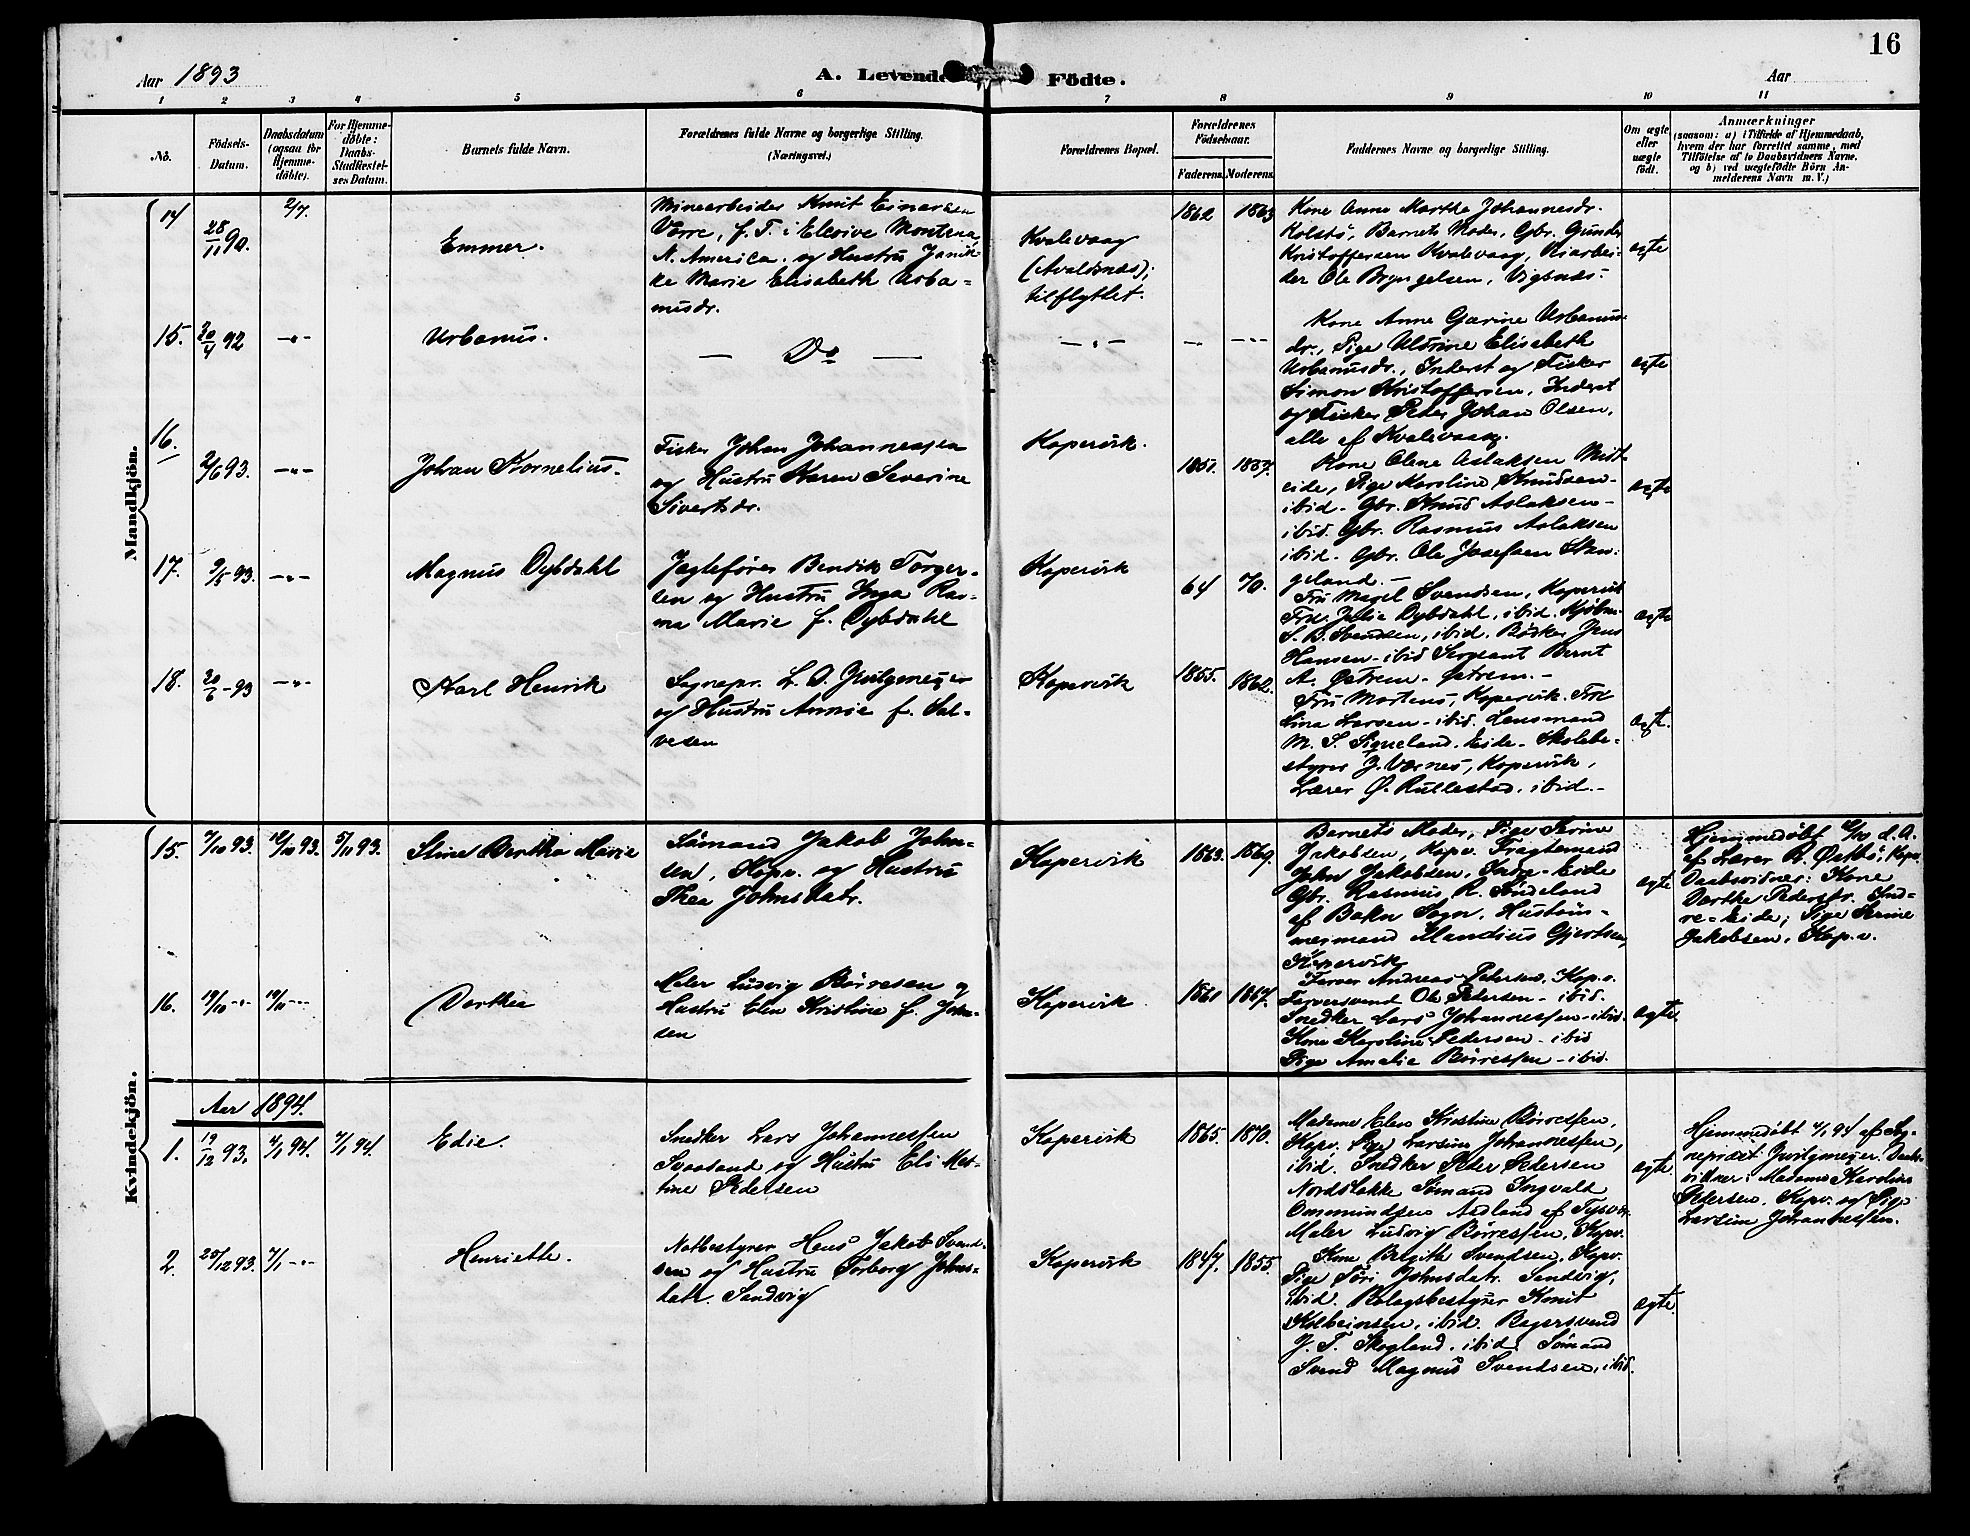 16
Aar 1893
A. Levende Födte.
Aar
1 2 3 4 5 6 7 8 9 10 11
No.
Födsels-
Datum.
Daabsdatum
(ogsaa for
Hjemme-
döbte).
For Hjemme-
döbte:
Daabs-
Stadfæstel-
ses Datum.
Barnets fulde Navn.
Forældrenes fulde Navne og borgerlige Stilling.
(Næringsvei.)
Forældrenes Bopæl.
Forældrenes
Födselsaar.
Faderens. Moderens.
Faddernes Navne og borgerlige Stilling.
Om ægte
eller
uægte
født.
Anmærkninger
(saasom: a) i Tilfælde af Hjemmedaab,
hvem der har forrettet samme, med
Tilföielse af to Daabsvidners Navne,
og b) ved uægtefödte Börn An-
melderens Navn m. V.)
Mandkjön.
14
28/11 90.
2/7.
Emmer.
Minearbeider Knut Einarsen
Vorre, f. T. i Elcoive Montena
N. America. og Hustru Janik-
ke Marie Elisabeth Urba-
nusdr.
Kvalevaag
(Avaldsnæs);
tilflyttet.
1862 1863
Kone Anne Martha Johannesdr.
Kolstö, Barnets Moder, Gbr. Gunder
Kristoffersen Kvalevaag,
der Ole Bryngelsen, Vigsnæs.
ægte
15. 20/4 92 -"-
Urbanus.
— Do —
-"- -- ---
Kone Anne Gurine Urbanus-
dr., Pige Aldrine Elisabeth
Urbanusdr., Inderst og Fisker
Simon Kristoffersen, Inderst
og Fisker Peder Johan Olsen,
alle af Kvalevaag.
ægte
16.
2/6 93. -"-
Johan Kornelius.
Fisker Johan Johannessen
og Hustru Karen Severine
Sivertsdr.
Kopervik.
1851. 1857.
Kone Olene Aslaksen Mist-
eide, Pige Karoline Knudsen-
ibid- Gbr. Knud Aslaksen-
ibid. Gbr. Rasmus Aslaksen
ibid- Gbr. Ole Josefsen Stan-
geland.-
ægte
17. 9/5-93. -"-
Magnus Dybdahl
Jagtefører Bendik Torger-
sen og Hustru Inga Ras-
ma Marie f. Dybdahl
Kopervik
64 70.
Fru Magel Svendsen, Kopervik
Frk. Julie Dybdahl, ibid. Kjøbm.
S. B. Svendsen, ibid. Bødker Jens
Hansen-ibid Sergeant Bernt
A. Østrem- Østrem.-
ægte
18. 20/6-93 -"-
Karl Henrik
Sognepr. L. O. Zwilgmeyer
og Hustru Annie f. Sal-
vesen
Kopervik
1855. 1862.
Fru Mortens, Kopervik. Frk
Lina Larsen-ibid. Lensmand
M. S. Signeland. Eide- Skolebe-
styrer J. Værnes, Kopervik,
Lærer Ø. Rullestad, ibid.-
ægte.
Kvindekjön.
15. 7/10 93. 10/10 93. 5/11 93.
Stine Bertha Marie
Sømand Jakob John-
sen, Kopv. og Hustru
Thea Johnsdatr.
Kopervik
1863. 1869.
Barnets Moder, Pige Serine
Jakobsen, Kopv. Fragtemand
John Jakobsen, Indre-Eide
Gbr. Rasmus R.
af Bokn Sogn, Hustøm-
mermand Mandius Gjertsen,
Kopervik
ægte
Hjemmedøbt 10/10 d. A.
af Lærer R. Østbø, Kopv.
Daabsvidner: Kone
Dorthe Pedersdr. Ind-
re-Eide, Pige Serine
Jakobsen, Kop.v.
16. 19/10 -"- 19/11 -"-
Dorthea
Maler Ludvig Børresen og
Hustru Elen Kristine f. Johan-
sen
Kopervik
1861 1867.
Farver Andreas Pedersen, Kop.v.
Farversvend Ole Pedersen- ibid.
Snedker Lars Johannessen-ibid.
Kone Karoline Pedersen- ibid
Pige Amalie Børresen-ibid.
ægte.
Aar 1894.
1. 19/12 93. 4/1 94. 7/1 94.
Edie.
Snedker Lars Johannessen
Svaasand og Hustru Eli Mar-
tine Pedersen
Kopervik
1865. 1870.
Madame Elen Kristine Børresen,
Kopv. Pige Larsine Johannessen,
ibid. Snedker Peder Pedersen
Nordstokke Sømand Ingvald
Ommundsen Aadland af Tysvær.
Maler Ludvig Børresen, Kopv.
ægte
Hjemmedøbt 4/1 94 af Sog-
nepræst Zwilgmeyer. Daabs-
vidner: Madame Karoline
Pedersen, Kopv. og Pige
Larsine Johannessen.
2. 20/12 93. 7/1 -"-
Henriette.
Notbestyrer Hans Jakob Svend-
sen og Hustru Torborg Johns-
datr. Sandvig
Kopervik
1847. 1855.
Kone Birgithe Svendsen, Kopv.
Pige Siri Johnsdatr. Sandvig,
ibid. Bolagsbestyrer Knut
Kolbeinsen, ibid. Bagersvend
J. T. Skogland, ibid. Sømand
Svend Magnus Svendsen, ibid.
ægte.